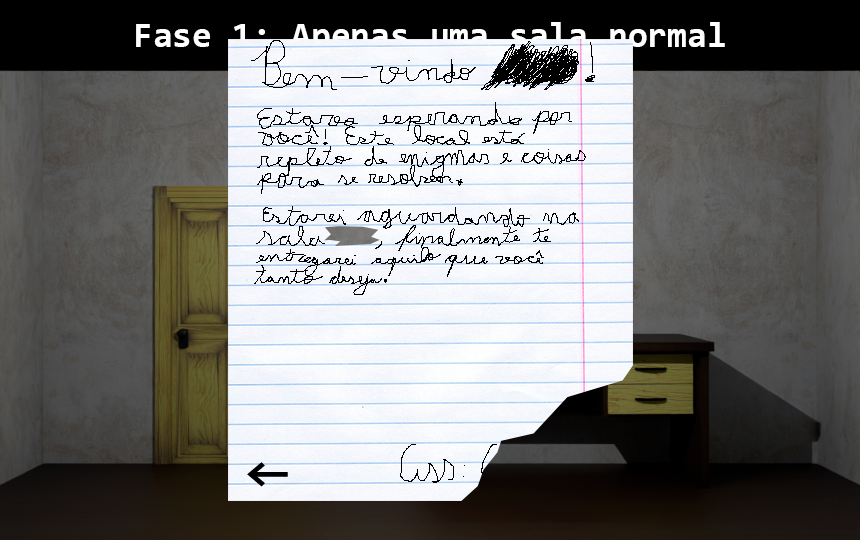 Fase 1: Apenas uma sala normal
Bem-vindo !
Estava esperando por
você! Este local está
repleto de enigmas e coisas
para se resolver.
Estarei aguardando na
sala , finalmente te
entregarei aquilo que você
tanto deseja!
Ass: